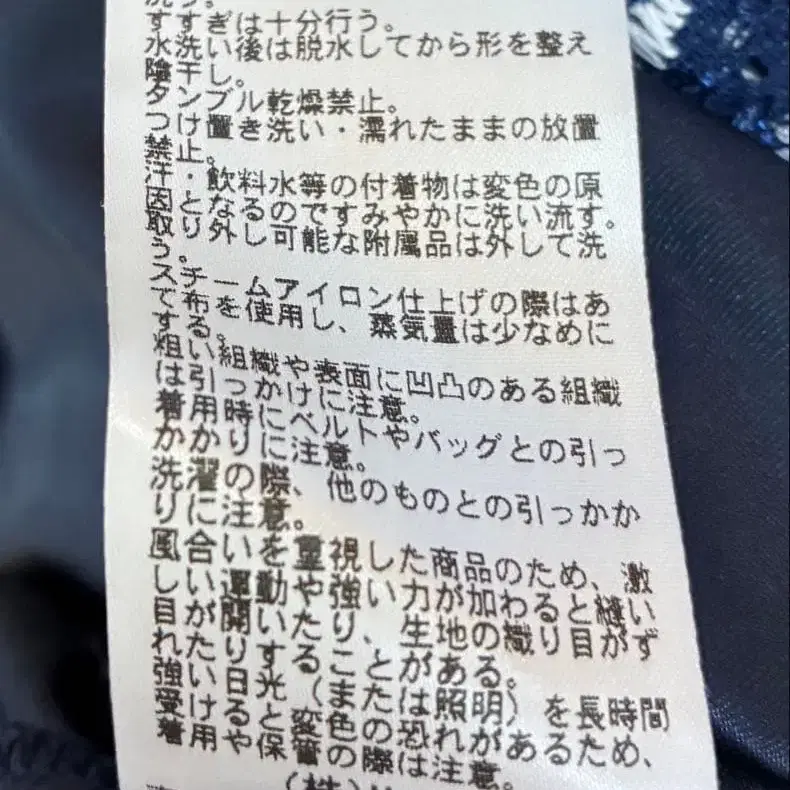 洗う。
すすぎは十分行う。
水洗い後は脱水してから形を整え
陰干し。
タンブル乾燥禁止。
つけ置き洗い・濡れたままの放置
禁止。
汗・飲料水等の付着物は変色の原
因となるのですみやかに洗い流す。
取り外し可能な附属品は外して洗
う。
スチームアイロン仕上げの際はあ
て布を使用し、蒸気量は少なめに
する。
粗い組織や表面に凹凸のある組織
は引っかけに注意。
着用時にベルトやバッグとの引っ
かかりに注意。
洗濯の際、他のものとの引っかか
りに注意。
風合いを重視した商品のため、激
しい運動や強い力が加わると縫い
目が開いたり、生地の織り目がず
れたりすることがある。
強い日光（または照明）を長時間
受けると変色の恐れがあるため、
着用や保管の際は注意。
(株)